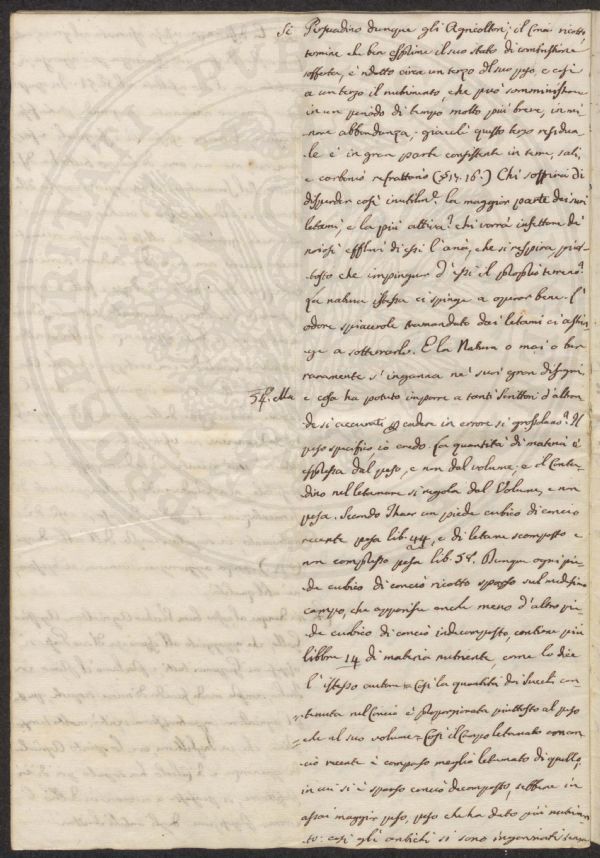 Si Persuadino dunque gli Agricoltori, il Concio ricotto
termine che ben esprime il suo stato di combustione
sofferta, è ridotto circa un terzo del suo peso, e così
a un terzo il nutrimento, che può somministrare
in un periodo di tempo molto più breve, in mi
nore abbondanza, giacchè questo terzo residua
le è in gran parte consistente in terre, sali,
e carbonio refrattario (§ 15. 16.) Chi soffrirà di
disperder così inutilm.e la maggior parte dei suoi
letami, e la più attiva? chi vorrà infettare dei
nocivi effluvi di essi l'aria, che si respira piut-
tosto che impinguar d'essi il proprio terreno?
La natura istessa ci spinge a operar bene. L'
odore spiacevole tramandato dai letami ci astrin
ge a sotterrarli. E la Natura o mai o ben
raramente s'inganna ne' suoi gran disegni.
54.° Ma e cosa ha potuto imporre a tanti Scrittori d'altron
de sì accurati cadere in errore sì grossolano? Il
peso specifico, io credo. La quantità di materia è
espressa dal peso, e non dal volume, e il Conta-
dino nel letamare si regola dal Volume, e non
pesa. Secondo Thaer un piede cubico di concio
recente pesa lib. 44, e di letame scomposto e
non compresso pesa lib. 58. Dunque ogni pie
de cubico di concio ricotto sparso sul medesimo
campo, che apparisce anche meno d'altro pie
de cubico di concio indecomposto, contiene più
libbre 14 di materia nutriente, come lo dice
l'istesso autore. Così la quantità dei succhi con
tenuta nel Concio è proporzionata piuttosto al peso
che al suo volume. Così il Campo letamato con con
cio recente è comparso meglio letamato di quello,
in cui si è sparso concio decomposto, sebbene in
assai maggior peso, peso che ha dato più nutrimen
to: così gli antichi si sono ingannati